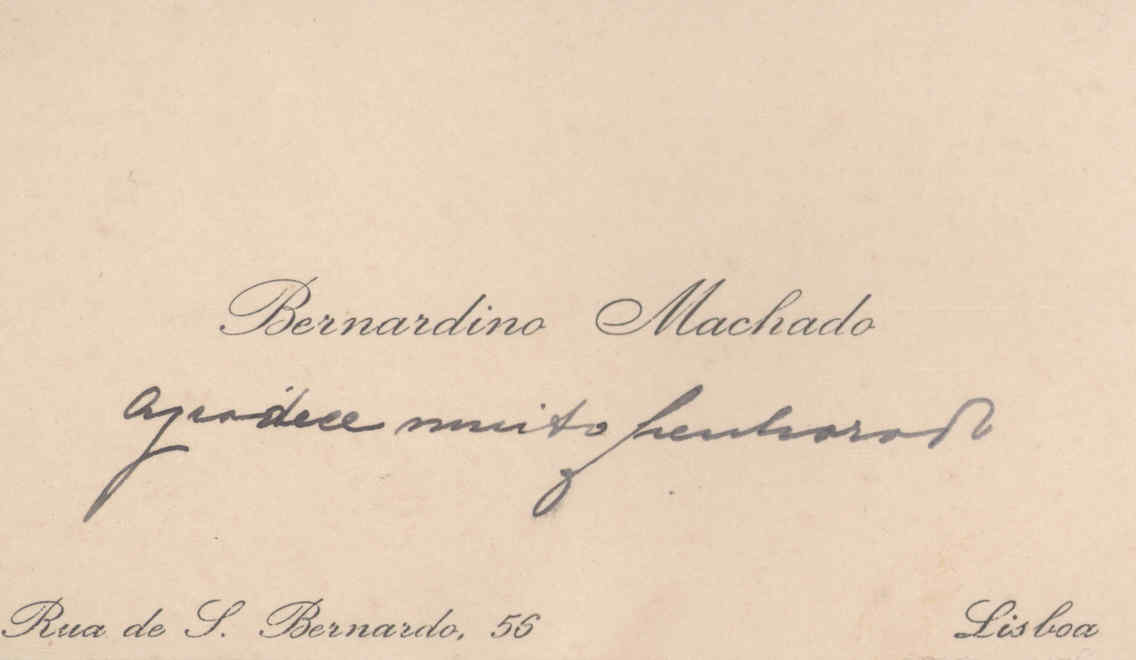 Bernardino Machado
agradece muito penhorado
Rua de S. Bernardo, 56
Lisboa